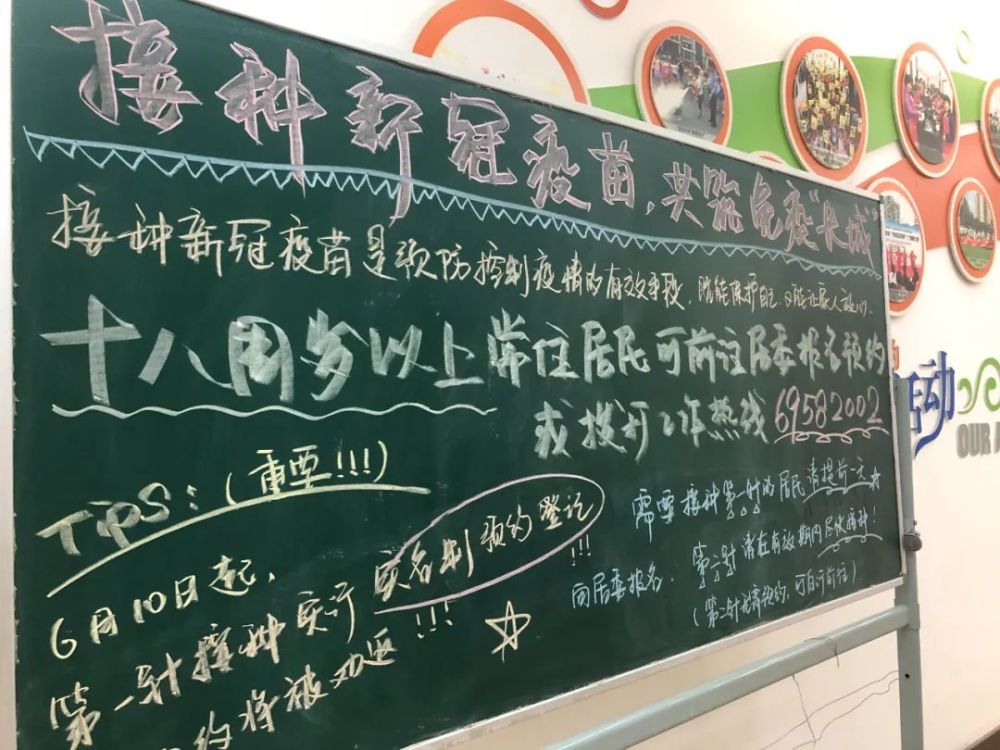 接种新冠疫苗,共筑免疫长城
接种新冠疫苗是预防控制疫情的有效手段,既能保护自己,又能让家人放心。
十八周岁以上常住居民可前往居委报名预约
或拨打工作热线69582002
TiPS:(重要!!!)
6月10日起,
第一针接种实行实名制预约登记!!!
约将被劝返!!!
需要接种第一针的居民请提前一天
向居委报名.第二针请在有效期内尽快接种!
(第二针无需预约,可自行前往)
活动
OUR